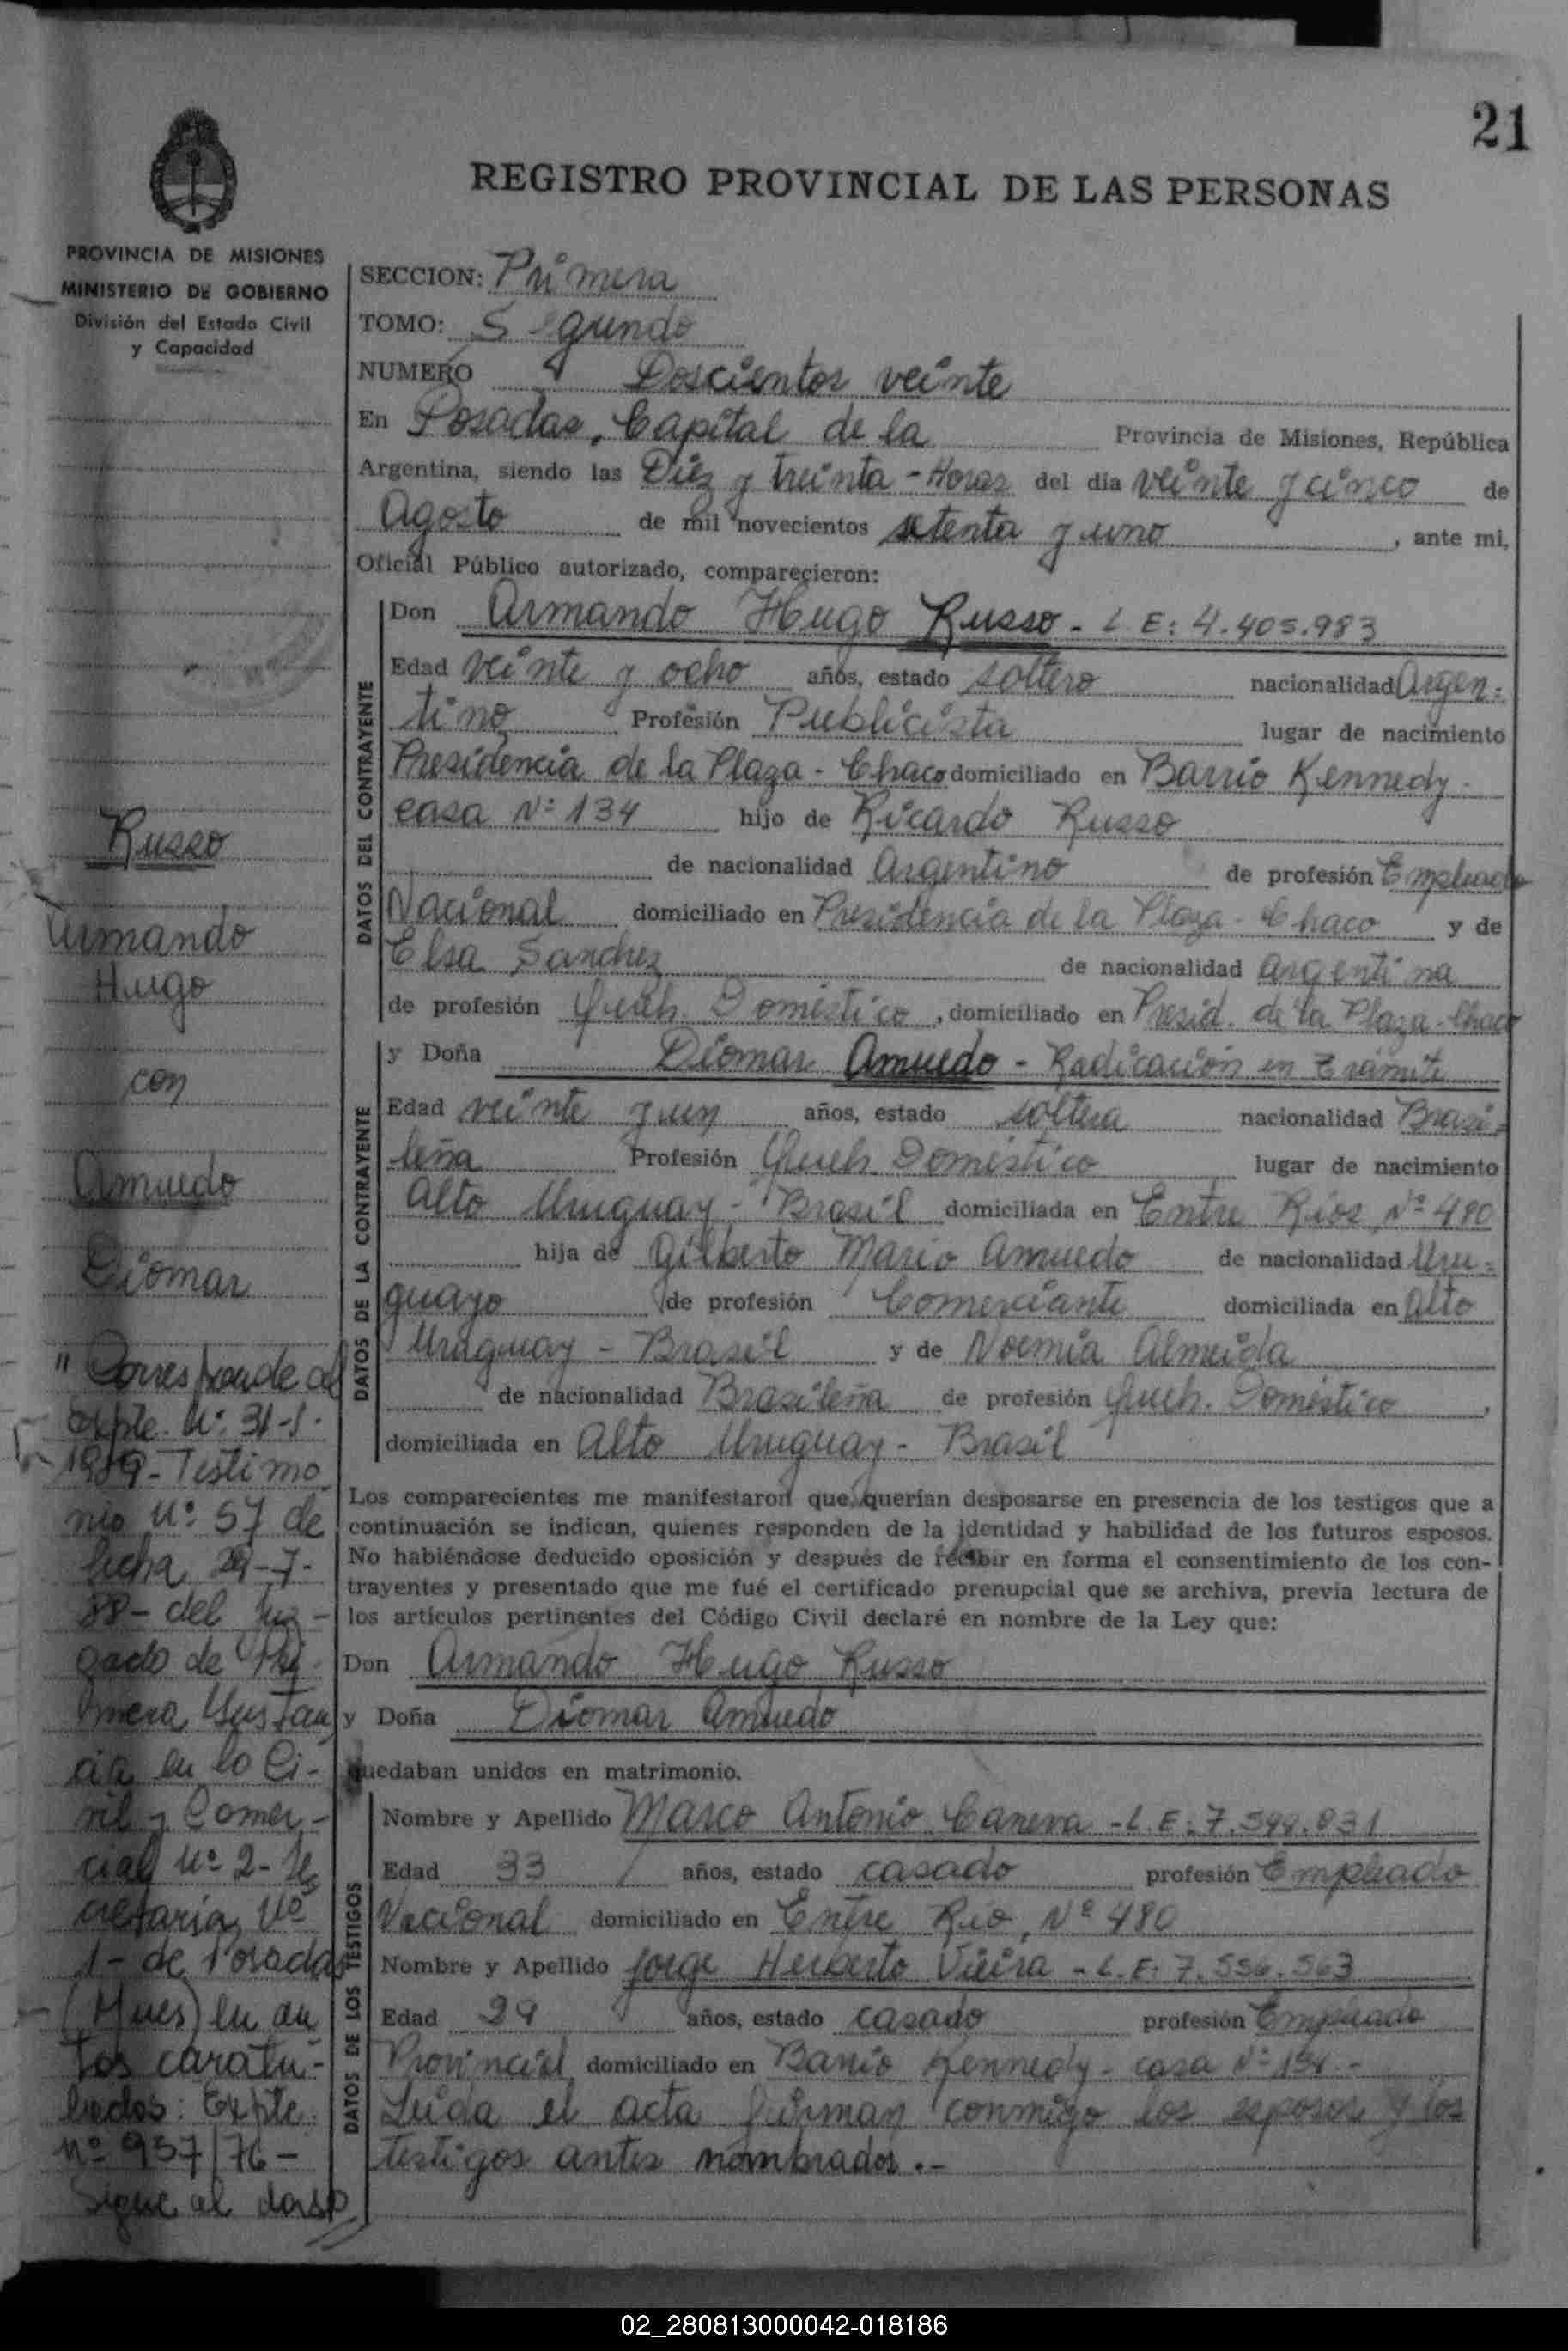 21
REGISTRO PROVINCIAL DE LAS PERSONAS
PROVINCIA DE MISIONES
MINISTERIO DE GOBIERNO
División del Estado Civil
y Capacidad
SECCION: Primera
TOMO: Segundo
NUMERO Doscientos veinte
En Posadas, Capital de la Provincia de Misiones, República
Argentina, siendo las Diez y treinta - Horas del día veinte y cinco de
Agosto de mil novecientos setenta y uno, ante mi,
Oficial Público autorizado, comparecieron:
DATOS DEL CONTRAYENTE
Don Armando Hugo Russo - L.E: 4.405.983
Edad veinte y ocho años, estado soltero nacionalidad Argen=
tino Profesión Publicista lugar de nacimiento
Presidencia de la Plaza - Chaco domiciliado en Barrio Kennedy -
casa Nº 134 hijo de Ricardo Russo
de nacionalidad Argentino de profesión Empleado
Nacional domiciliado en Presidencia de la Plaza - Chaco y de
Elsa Sanchez de nacionalidad argentina
de profesión Queh. Doméstico, domiciliado en Presid. de la Plaza - Chaco
DATOS DE LA CONTRAYENTE
y Doña Diomar Amuedo - Radicación en Trámite
Edad veinte y un años, estado soltera nacionalidad Brasi=
leña Profesión Queh. Doméstico lugar de nacimiento
Alto Uruguay - Brasil domiciliada en Entre Ríos Nº 480
hija de Gilberto Mario Amuedo de nacionalidad Uru=
guayo de profesión Comerciante domiciliada en Alto
Uruguay - Brasil y de Noemia Almeida
de nacionalidad Brasileña de profesión Queh. Doméstico,
domiciliada en Alto Uruguay - Brasil
Los comparecientes me manifestaron que querían desposarse en presencia de los testigos que a
continuación se indican, quienes responden de la identidad y habilidad de los futuros esposos.
No habiéndose deducido oposición y después de recibir en forma el consentimiento de los con-
trayentes y presentado que me fué el certificado prenupcial que se archiva, previa lectura de
los artículos pertinentes del Código Civil declaré en nombre de la Ley que:
Don Armando Hugo Russo
y Doña Diomar Amuedo
quedaban unidos en matrimonio.
DATOS DE LOS TESTIGOS
Nombre y Apellido Marco Antonio Caneva - L.E: 7.
Edad 33 años, estado casado profesión Empleado
Nacional domiciliado en Entre Rio, Nº 480
Nombre y Apellido Jorge Herberto Vieira - L.E: 7.556.563
Edad 29 años, estado casado profesión Empleado
Provincial domiciliado en Barrio Kennedy - casa Nº
Leída el acta firman conmigo los esposos y los
testigos antes nombrados.-
Russo
Armando
Hugo
con
Amuedo
Diomar
"Corresponde al
expte. Nº 31-1-
1989 - Testimo
nio Nº 57 de
fecha 29-7-
88 - del Juz-
gado de Pri
mera Instan
cia en lo Ci-
vil y Comer-
cial Nº 2 - Se
cretaría Nº
1 - de Posadas
(Mnes) en au
tos caratu-
lados: Expte
Nº 957/76 -
Sigue al dorso
02_280813000042-018186